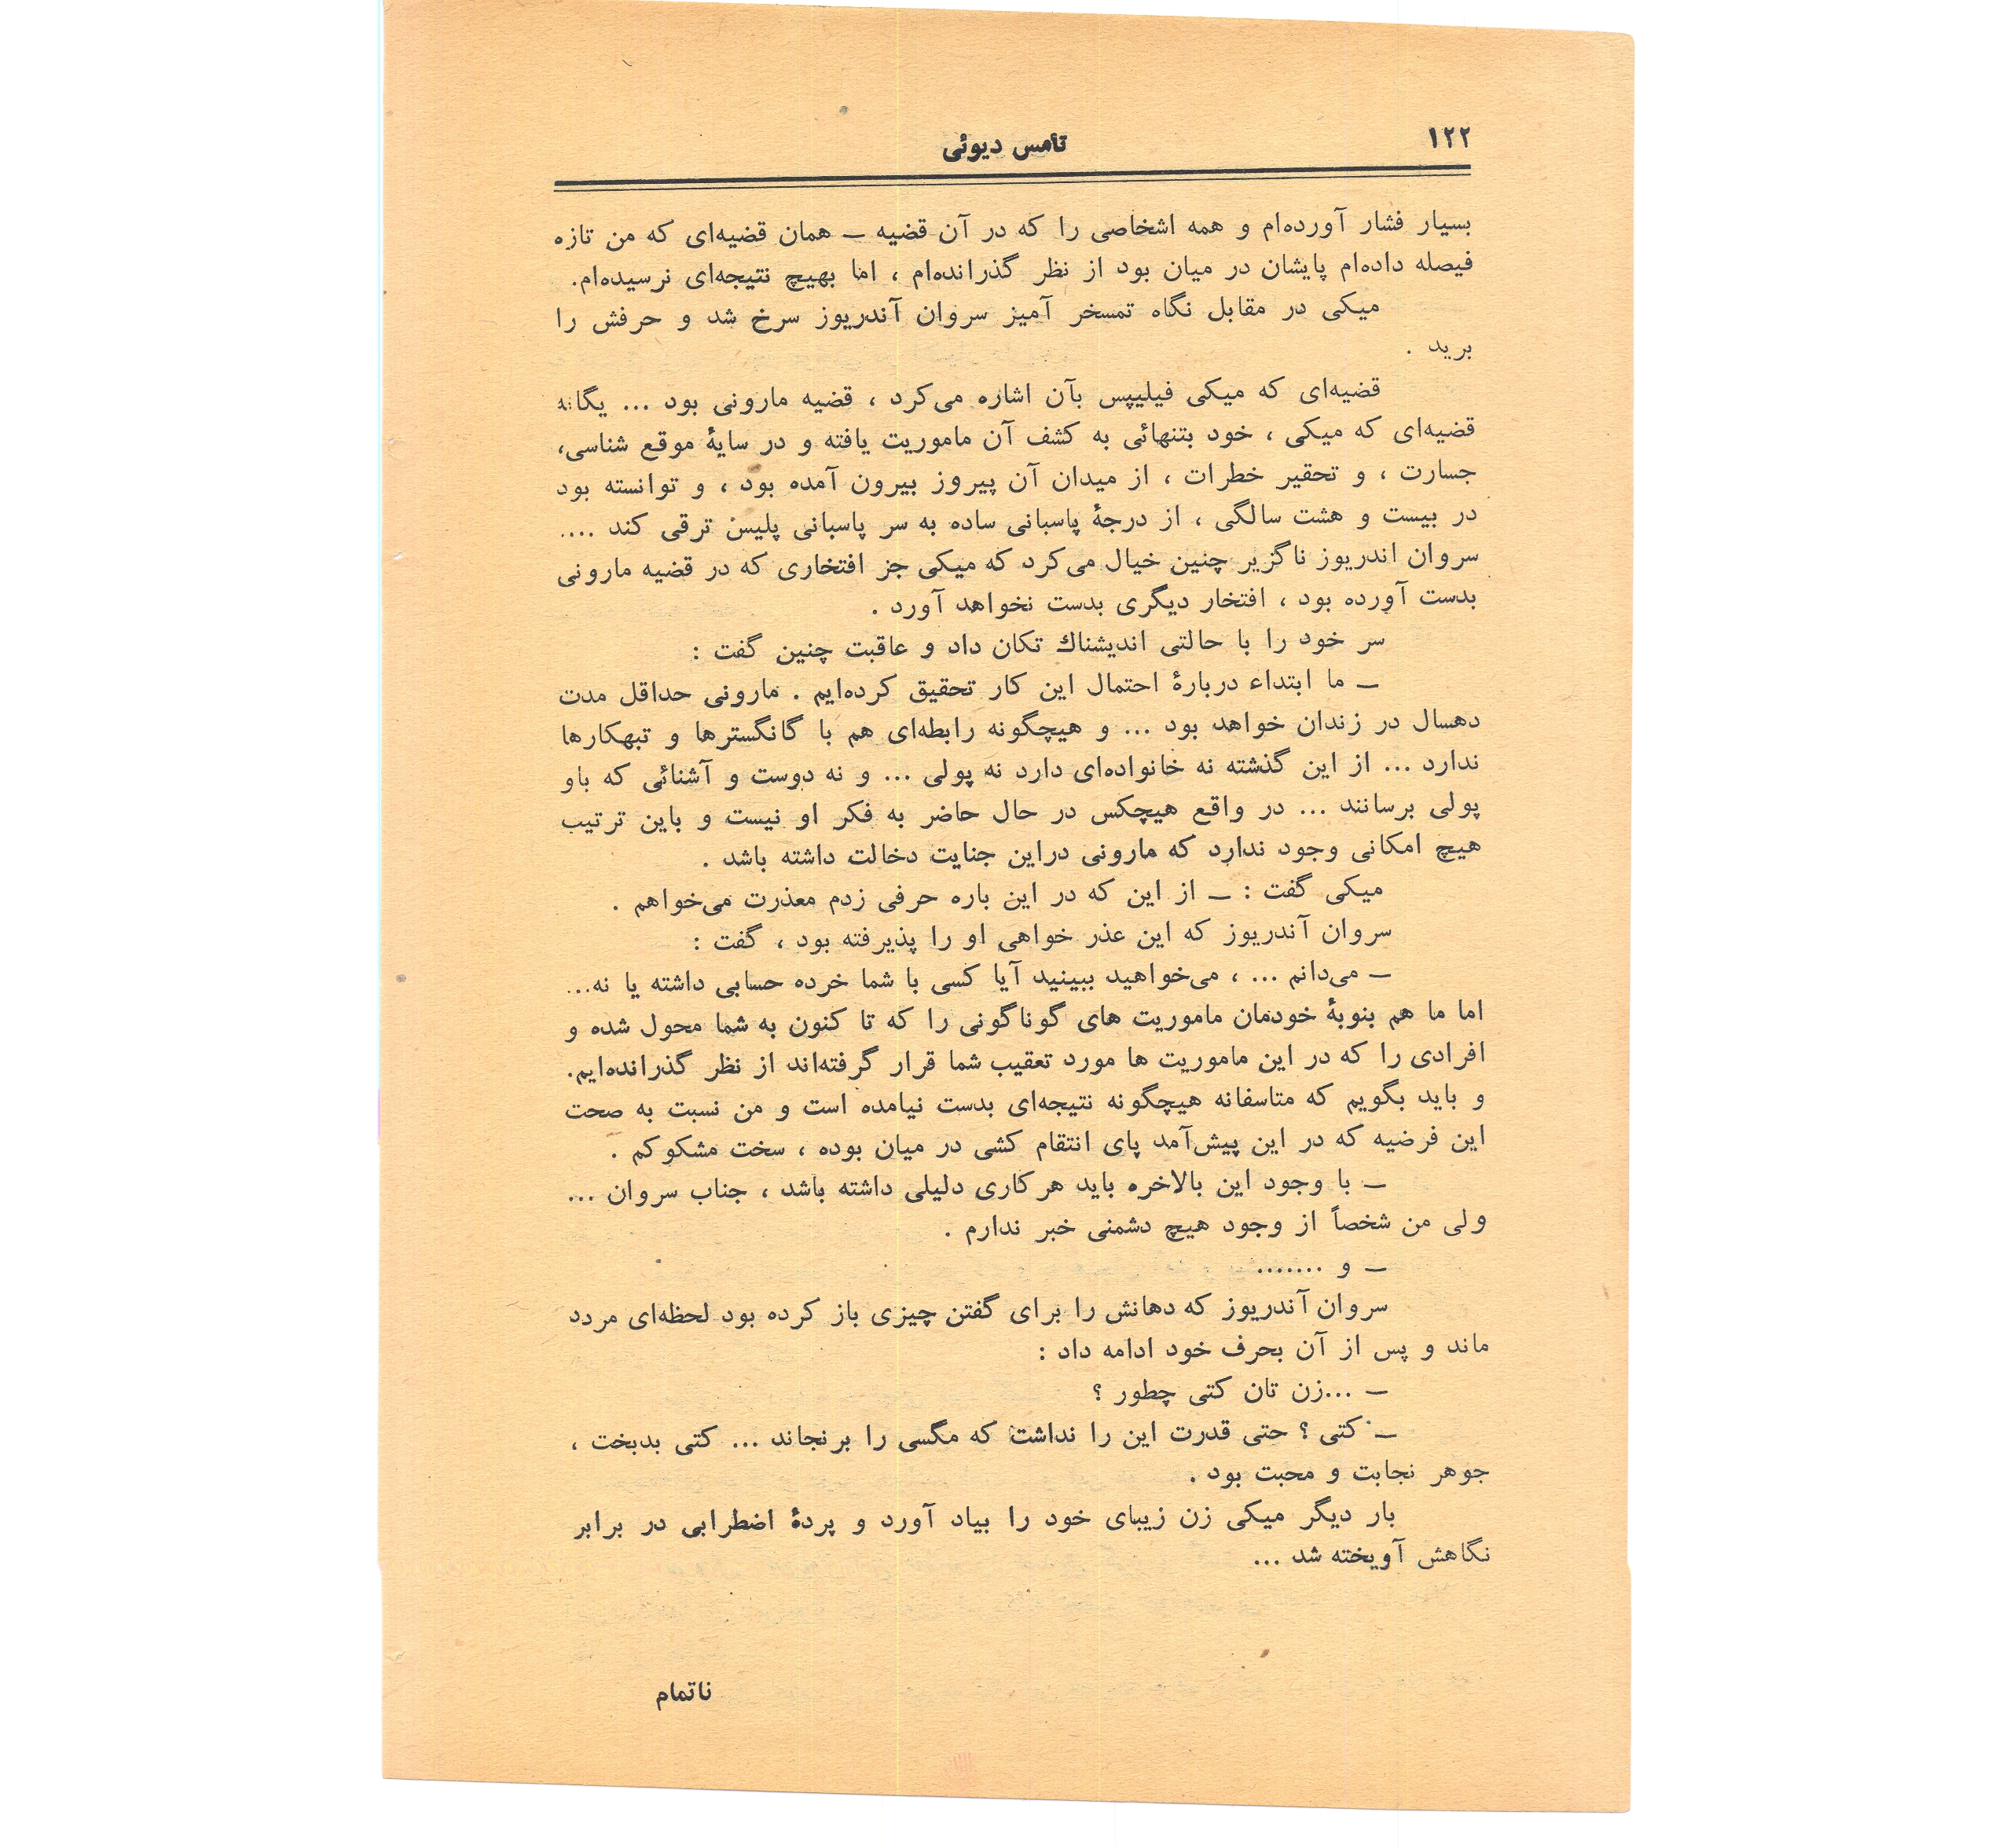 ۱۲۲
تامس دیوئی
بسیار فشار آورده‌ام و همه اشخاصی را که در آن قضیه ــ همان قضیه‌ای که من تازه
فیصله داده‌ام پایشان در میان بود از نظر گذرانده‌ام ، اما بهیچ نتیجه‌ای نرسیده‌ام.
میکی در مقابل نگاه تمسخر آمیز سروان آندریوز سرخ شد و حرفش را
برید .
قضیه‌ای که میکی فیلیپس بآن اشاره می‌کرد ، قضیه مارونی بود ... یگانه
قضیه‌ای که میکی ، خود بتنهائی به کشف آن ماموریت یافته و در سایهٔ موقع شناسی،
جسارت ، و تحقیر خطرات ، از میدان آن پیروز بیرون آمده بود ، و توانسته بود
در بیست و هشت سالگی ، از درجهٔ پاسبانی ساده به سر پاسبانی پلیس ترقی کند ....
سروان اندریوز ناگزیر چنین خیال می‌کرد که میکی جز افتخاری که در قضیه مارونی
بدست آورده بود ، افتخار دیگری بدست نخواهد آورد .
سر خود را با حالتی اندیشناك تکان داد و عاقبت چنین گفت :
ــ ما ابتداء دربارهٔ احتمال این کار تحقیق کرده‌ایم . مارونی حداقل مدت
دهسال در زندان خواهد بود ... و هیچگونه رابطه‌ای هم با گانگسترها و تبهکارها
ندارد ... از این گذشته نه خانواده‌ای دارد نه پولی ... و نه دوست و آشنائی که باو
پولی برسانند ... در واقع هیچکس در حال حاضر به فکر او نیست و باین ترتیب
هیچ امکانی وجود ندارد که مارونی دراین جنایت دخالت داشته باشد .
میکی گفت : ــ از این که در این باره حرفی زدم معذرت می‌خواهم .
سروان آندریوز که این عذر خواهی او را پذیرفته بود ، گفت :
ــ می‌دانم ... ، می‌خواهید ببینید آیا کسی با شما خرده حسابی داشته یا نه...
اما ما هم بنوبهٔ خودمان ماموریت های گوناگونی را که تا کنون به شما محول شده و
افرادی را که در این ماموریت ها مورد تعقیب شما قرار گرفته‌اند از نظر گذرانده‌ایم.
و باید بگویم که متاسفانه هیچگونه نتیجه‌ای بدست نیامده است و من نسبت به صحت
این فرضیه که در این پیش‌آمد پای انتقام کشی در میان بوده ، سخت مشکوکم .
ــ با وجود این بالاخره باید هرکاری دلیلی داشته باشد ، جناب سروان ...
ولی من شخصاً از وجود هیچ دشمنی خبر ندارم .
ــ و .......
سروان آندریوز که دهانش را برای گفتن چیزی باز کرده بود لحظه‌ای مردد
ماند و پس از آن بحرف خود ادامه داد :
ــ ...زن تان کتی چطور ؟
ــ کتی ؟ حتی قدرت این را نداشت که مگسی را برنجاند ... کتی بدبخت ،
جوهر نجابت و محبت بود .
بار دیگر میکی زن زیبای خود را بیاد آورد و پردهٔ اضطرابی در برابر
نگاهش آویخته شد ...
ناتمام